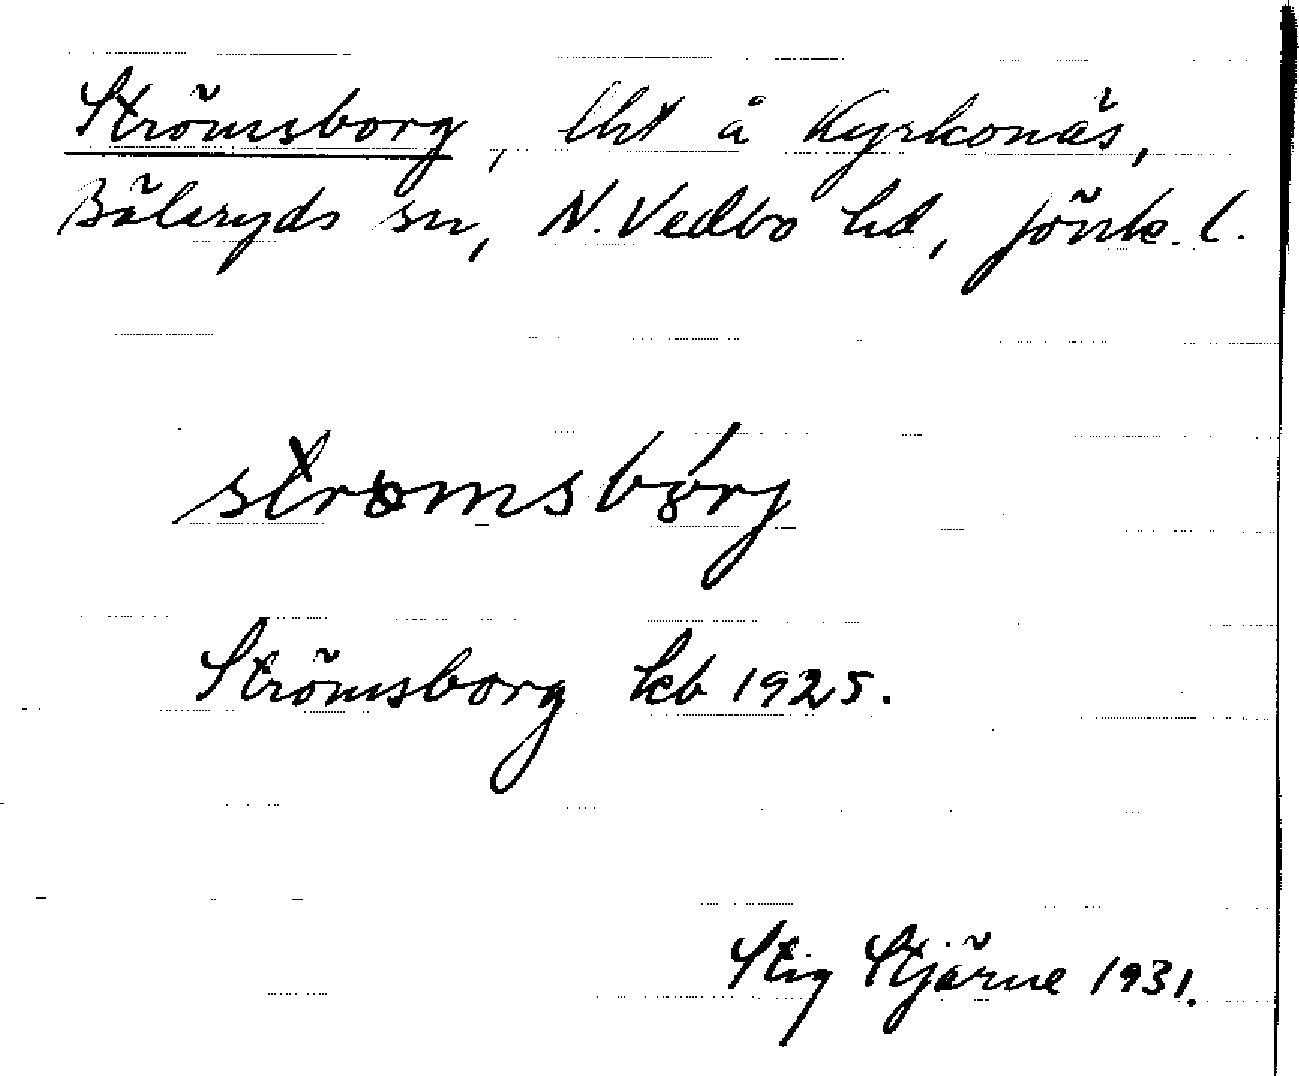 Strömsborg, lht å Kyrkonäs,
Bälaryds sn, N. Vedbo hd, Jönk. l.
strömsbórj
Strömsborg kb 1925.
Stig Stjärne 1931.